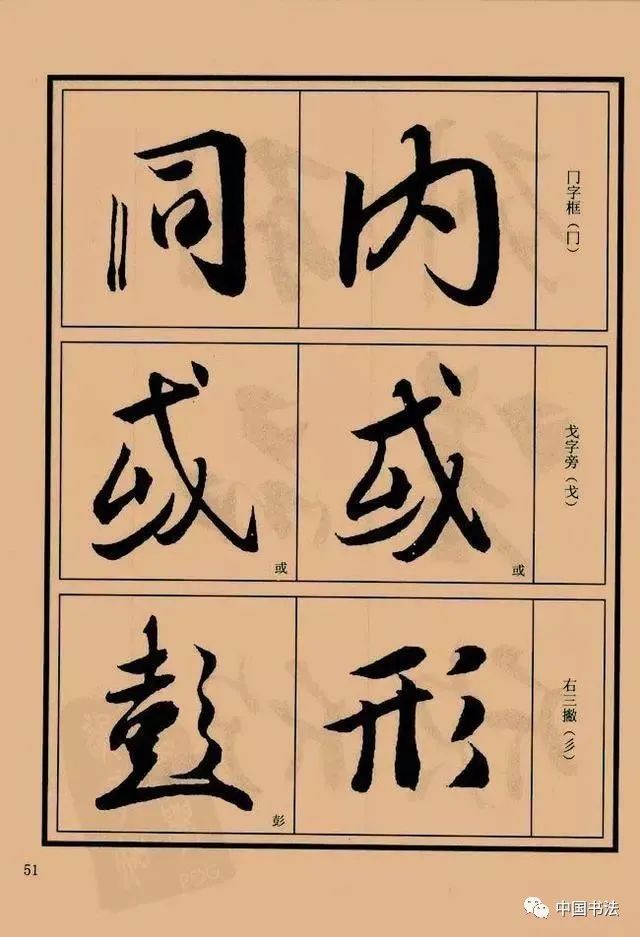 冂字框（冂）
内
同
戈字旁（戈）
或
或
或
或
右三撇（彡）
形
彭
彭
51
中国书法